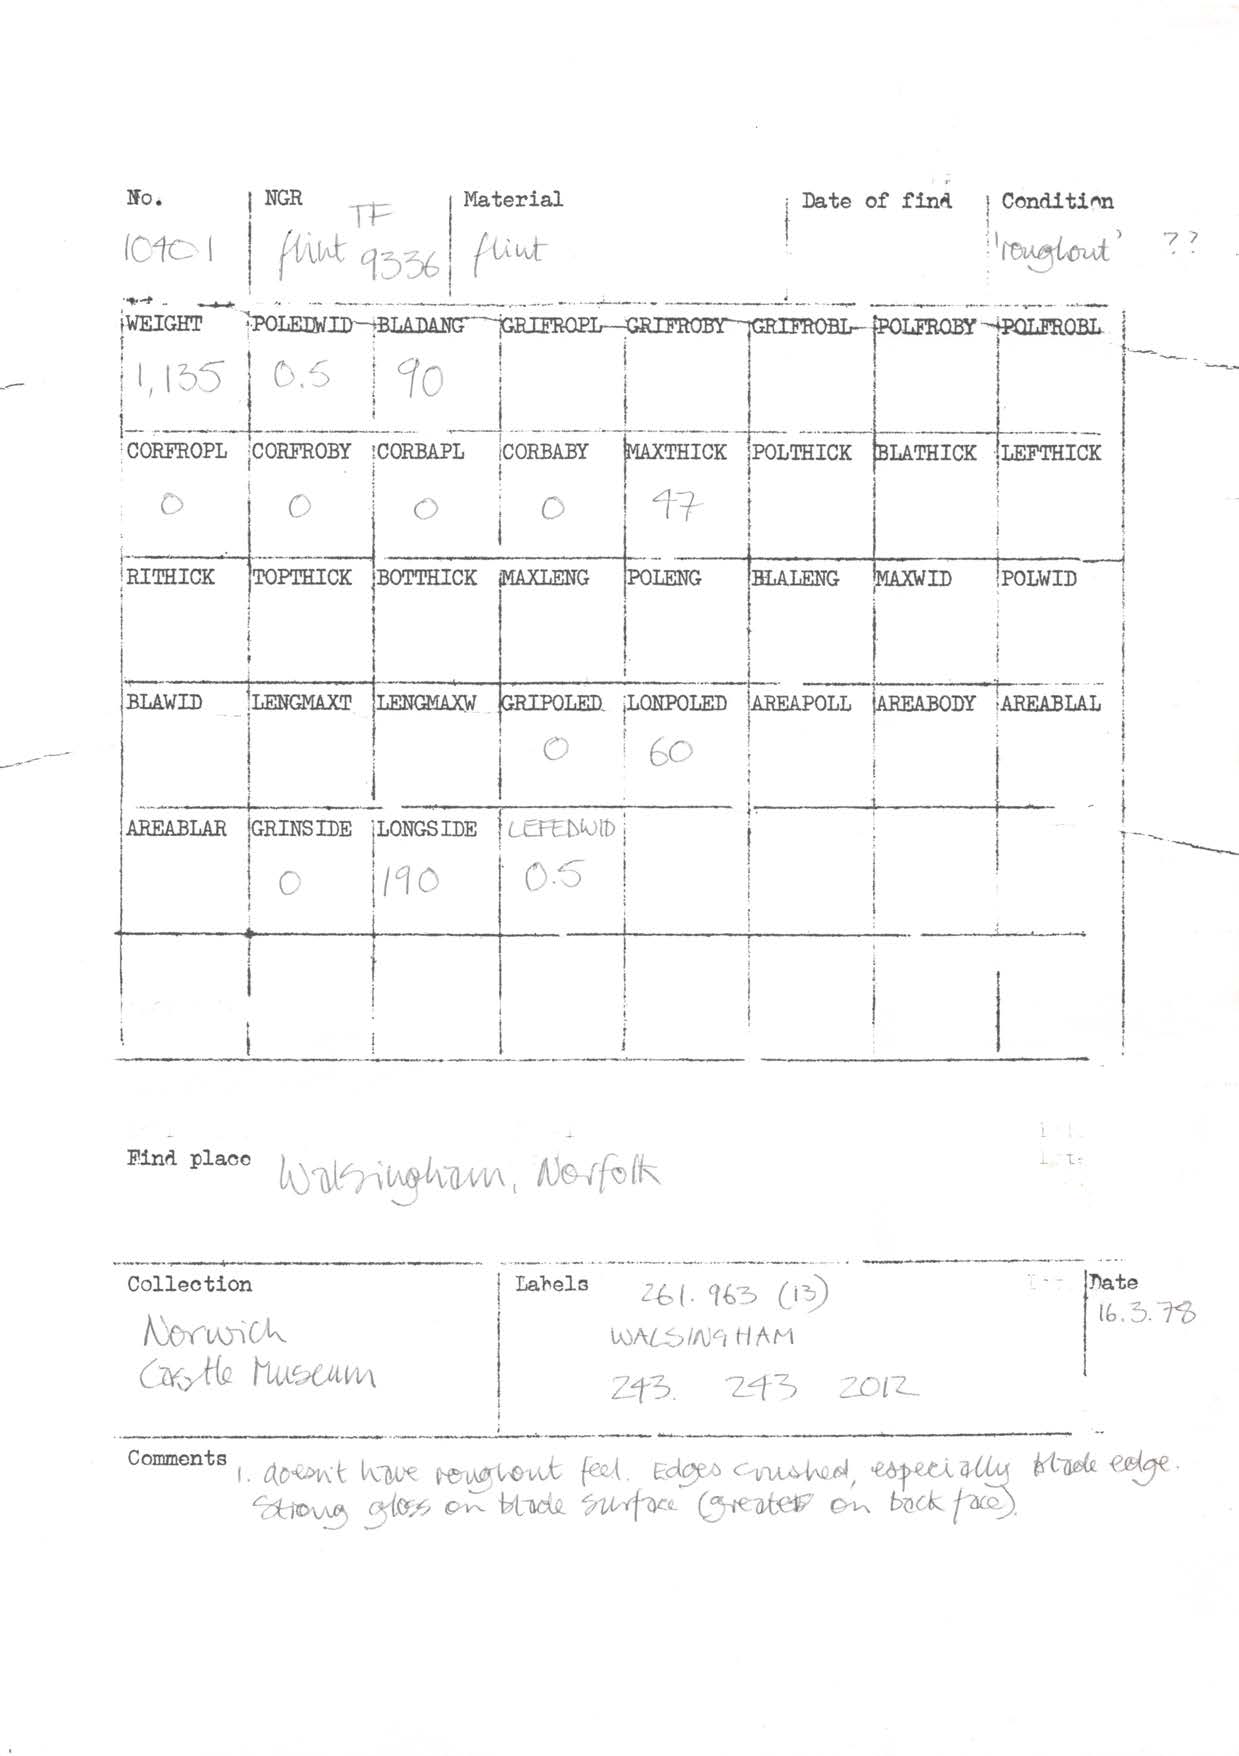 No. NGR Material Date of find Condition
10401 flint TF 9336 flint 'roughout' ??
WEIGHT POLEDWID BLADANG GRIFROPL GRIFROBY GRIFROBL POLFROBY POLFROBL
1,135 0.5 90
CORFROPL CORFROBY CORBAPL CORBABY MAXTHICK POLTHICK BLATHICK LEFTHICK
0 0 0 0 47
RITHICK TOPTHICK BOTTHICK MAXLENG POLENG BLALENG MAXWID POLWID
BLAWID LENGMAXT LENGMAXW GRIPOLED LONPOLED AREAPOLL AREABODY AREABLAL
0 60
AREABLAR GRINSIDE LONGSIDE LEFEDWID
0 190 0.5
Find place Walsingham, Norfolk
Collection Labels 261.963 (13) Date
Norwich WALSINGHAM 16.3.78
Castle Museum 243. 243 2012
Comments 1. doesn't have roughout feel. Edges crushed, especially blade edge.
Strong gloss on blade surface (greater on back face).